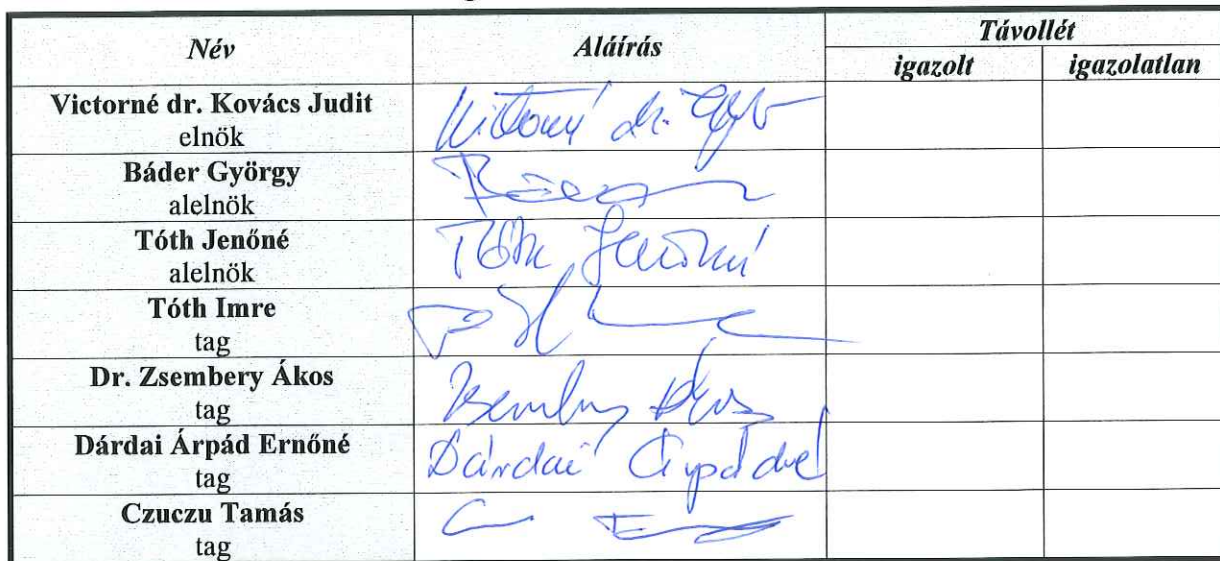 Név Aláírás Távollét
igazolt igazolatlan
Victorné dr. Kovács Judit
elnök
Báder György
alelnök
Tóth Jenőné
alelnök
Tóth Jenőné
Tóth Imre
tag
Dr. Zsembery Ákos
tag
Dárdai Árpád Ernőné
tag
Dárdai Árpádné
Czuczu Tamás
tag